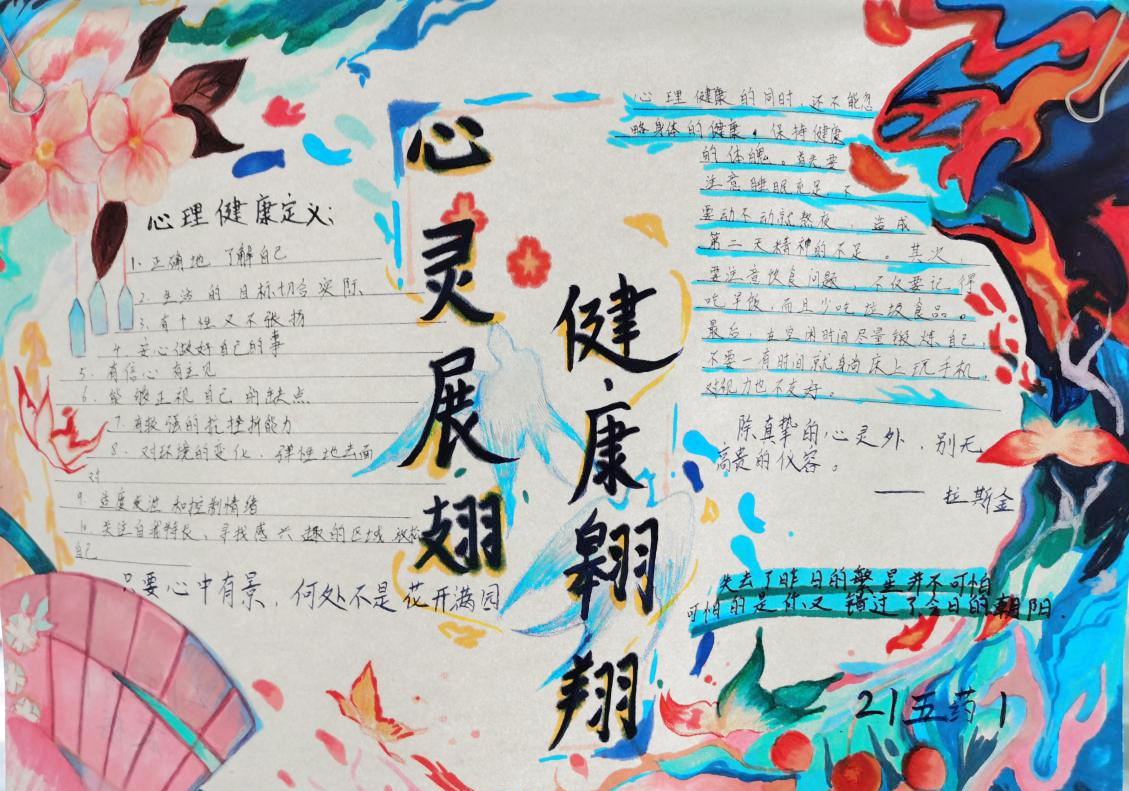 心灵展翅
健康翱翔
心理健康定义:
1. 正确地 了解自己
2. 生活的目标切合实际
3. 有个性又不张扬
4. 安心做好自己的事
5. 有信心 有主见
6. 能够正视自己的缺点
7. 有较强的抗挫折能力
8. 对环境的变化, 弹性地去面
对
9. 适度表达和控制情绪
10. 关注自我特长, 寻找感兴趣的区域 放松
自己
只要心中有景, 何处不是花开满园
心理健康的同时, 还不能忽
略身体的健康。保持健康
的体魄。首先要
注意睡眠充足, 不
要动不动就熬夜, 造成
第二天精神的不足。其次,
要注意饮食问题, 不仅要记得
吃早饭, 而且少吃垃圾食品。
最后, 在空闲时间尽量锻炼自己,
不要一有时间就躺床上玩手机,
对视力也不友好。
除真挚的心灵外, 别无
高贵的仪容。
—— 拉斯金
失去了昨日的繁星并不可怕
可怕的是你又错过了今日的朝阳.
21五药1